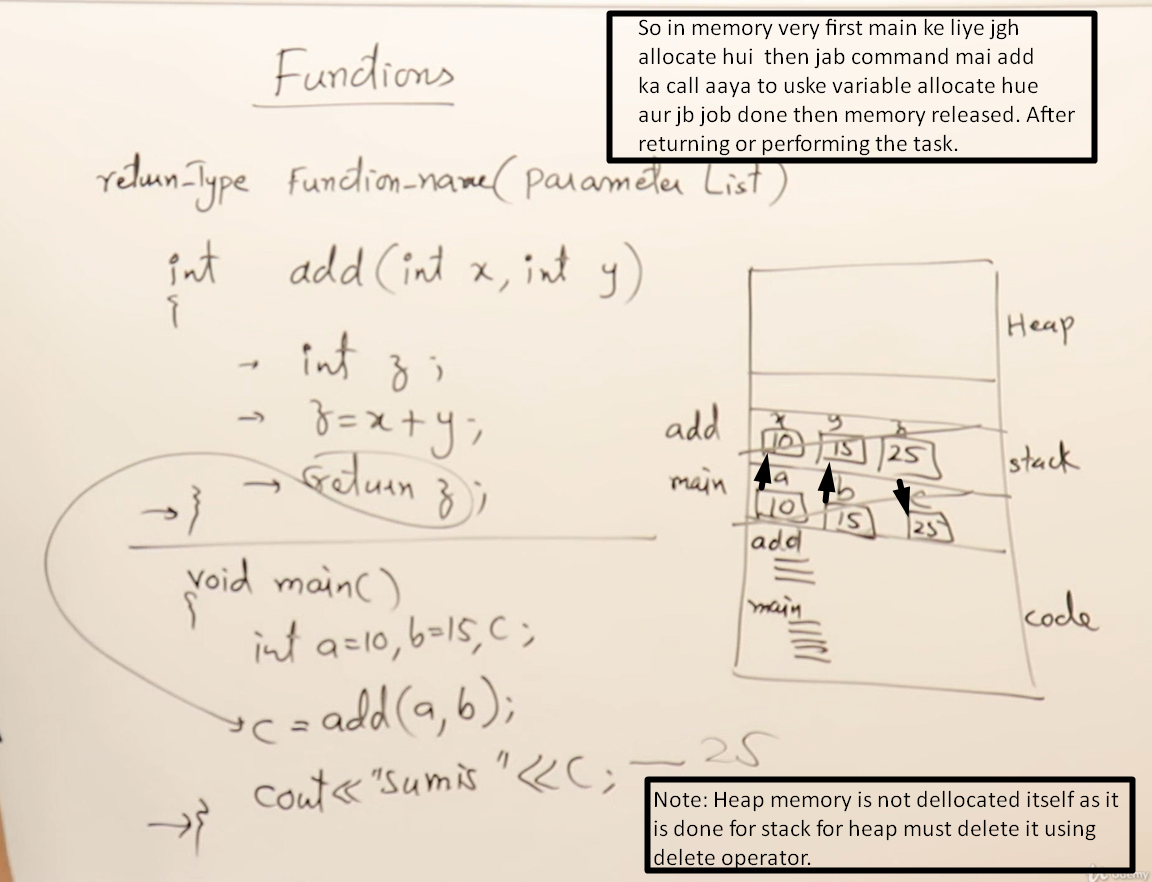 Functions
So in memory very first main ke liye jgh
allocate hui then jab command mai add
ka call aaya to uske variable allocate hue
aur jb job done then memory released. After
returning or performing the task.
return_Type Function_name(Parameter List)
int add(int x, int y)
{
→ int z;
→ z=x+y;
→ return z;
→ }
void main()
{
int a=10, b=15, c;
c = add(a, b);
cout<<"sum is "<<c; — 25
→ }
Heap
add
x y z
10 15 25
stack
main
a b c
10 15 25
add
main
code
Note: Heap memory is not dellocated itself as it
is done for stack for heap must delete it using
delete operator.